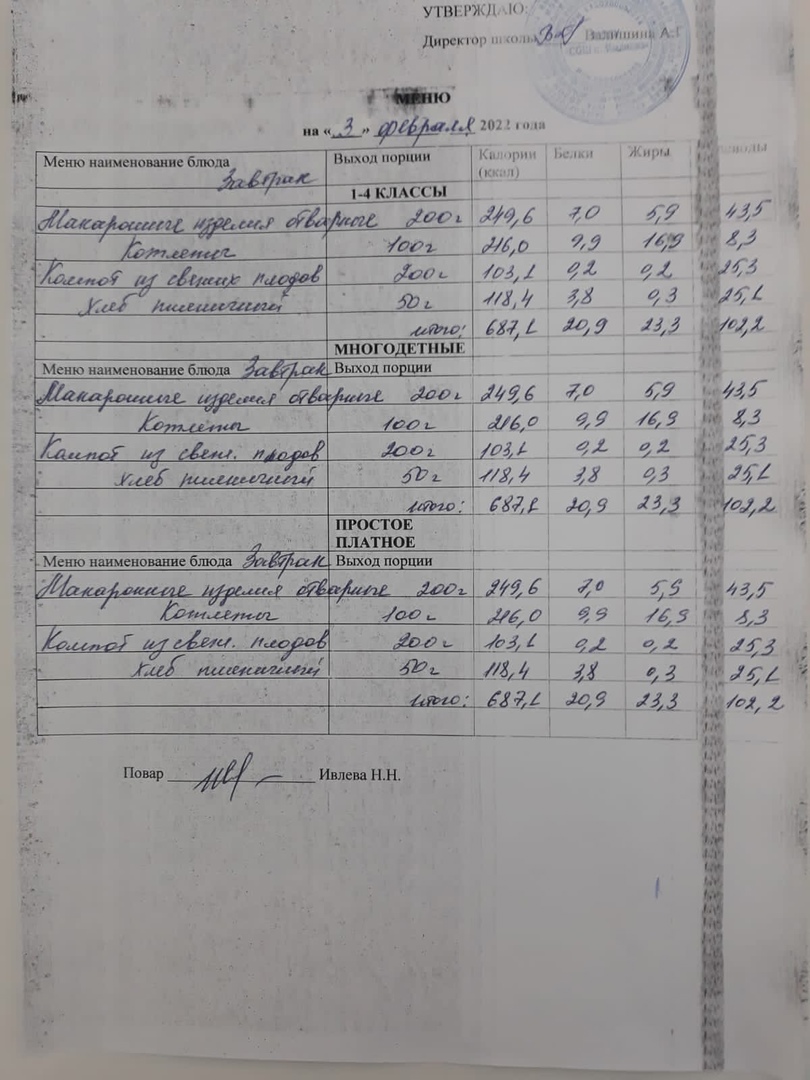 УТВЕРЖДАЮ:
Директор школы Валишина А.Г
МЕНЮ
на «3» февраля 2022 года
Меню наименование блюда Завтрак Выход порции Калории (ккал) Белки Жиры
1-4 КЛАССЫ
Макаронные изделия отварные 200г 249,6 7,0 5,9 43,5
Котлеты 100г 216,0 9,9 16,9 8,3
Компот из свежих плодов 200г 103,1 0,2 0,2 25,3
Хлеб пшеничный 50г 118,4 3,8 0,3 25,1
итого: 687,1 20,9 23,3 102,2
МНОГОДЕТНЫЕ
Меню наименование блюда Завтрак Выход порции
Макаронные изделия отварные 200г 249,6 7,0 5,9 43,5
Котлеты 100г 216,0 9,9 16,9 8,3
Компот из свеж. плодов 200г 103,1 0,2 0,2 25,3
Хлеб пшеничный 50г 118,4 3,8 0,3 25,1
итого: 687,1 20,9 23,3 102,2
ПРОСТОЕ
ПЛАТНОЕ
Меню наименование блюда Завтрак Выход порции
Макаронные изделия отварные 200г 249,6 7,0 5,9 43,5
Котлеты 100г 216,0 9,9 16,9 8,3
Компот из свеж. плодов 200г 103,1 0,2 0,2 25,3
Хлеб пшеничный 50г 118,4 3,8 0,3 25,1
итого: 687,1 20,9 23,3 102,2
Повар Ивлева Н.Н.